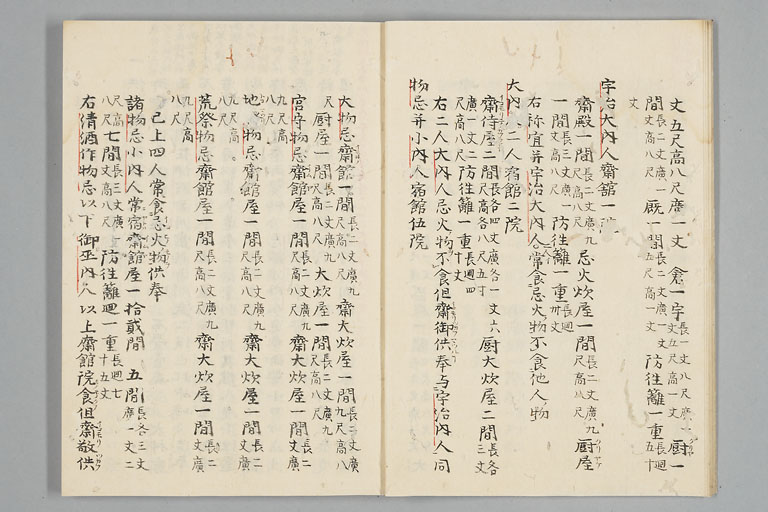 丈五尺高八尺廣一丈 倉一宇長一丈八尺廣一丈五尺高一丈 厨一
間長二丈廣一丈高八尺 厩一間長二丈廣一丈五尺高一丈 防往籬一重長廻五十丈
宇治大內人齋舘一院
齋殿一間長二丈廣九尺高八尺 忌火炊屋一間長二丈廣九尺高八尺 厨屋
一間長三丈廣一丈高八尺 防往籬一重長廻卅丈
右祢宜并宇治大內人常食忌火物不食他人物
大內人二人宿館二院
齋侍屋二間長各四丈廣各一丈六尺高各八尺五寸 厨大炊屋二間長各三丈廣一丈二尺高八尺 防往籬一重長廻四十丈
右二人大內人忌火物不食但齋御供奉与宇治內人同
物忌并小內人宿館伍院
大物忌齋館一間長二丈廣九尺高八尺 齋大炊屋一間長二丈廣九尺高八
尺 厨屋一間長二丈廣九尺高八尺 大炊屋一間長二丈廣九尺高八尺
宮守物忌齋館屋一間長二丈廣九尺高八尺 齋大炊屋一間長二丈廣九尺高八尺
地物忌齋館屋一間長二丈廣九尺高八尺 齋大炊屋一間長二丈廣九尺高八尺
荒祭物忌齋館屋一間長二丈廣九尺高八尺 齋大炊屋一間長二丈廣九尺高八尺
已上四人常食忌火物供奉
諸物忌小內人常宿齋館屋一拾貳間 五間長各三丈廣一丈二尺高八尺 七間長三丈廣一丈高八尺 防往籬廻一重長廻七十五丈
右淸酒作物忌以下御巫內人以上齋館院食但齋敬供